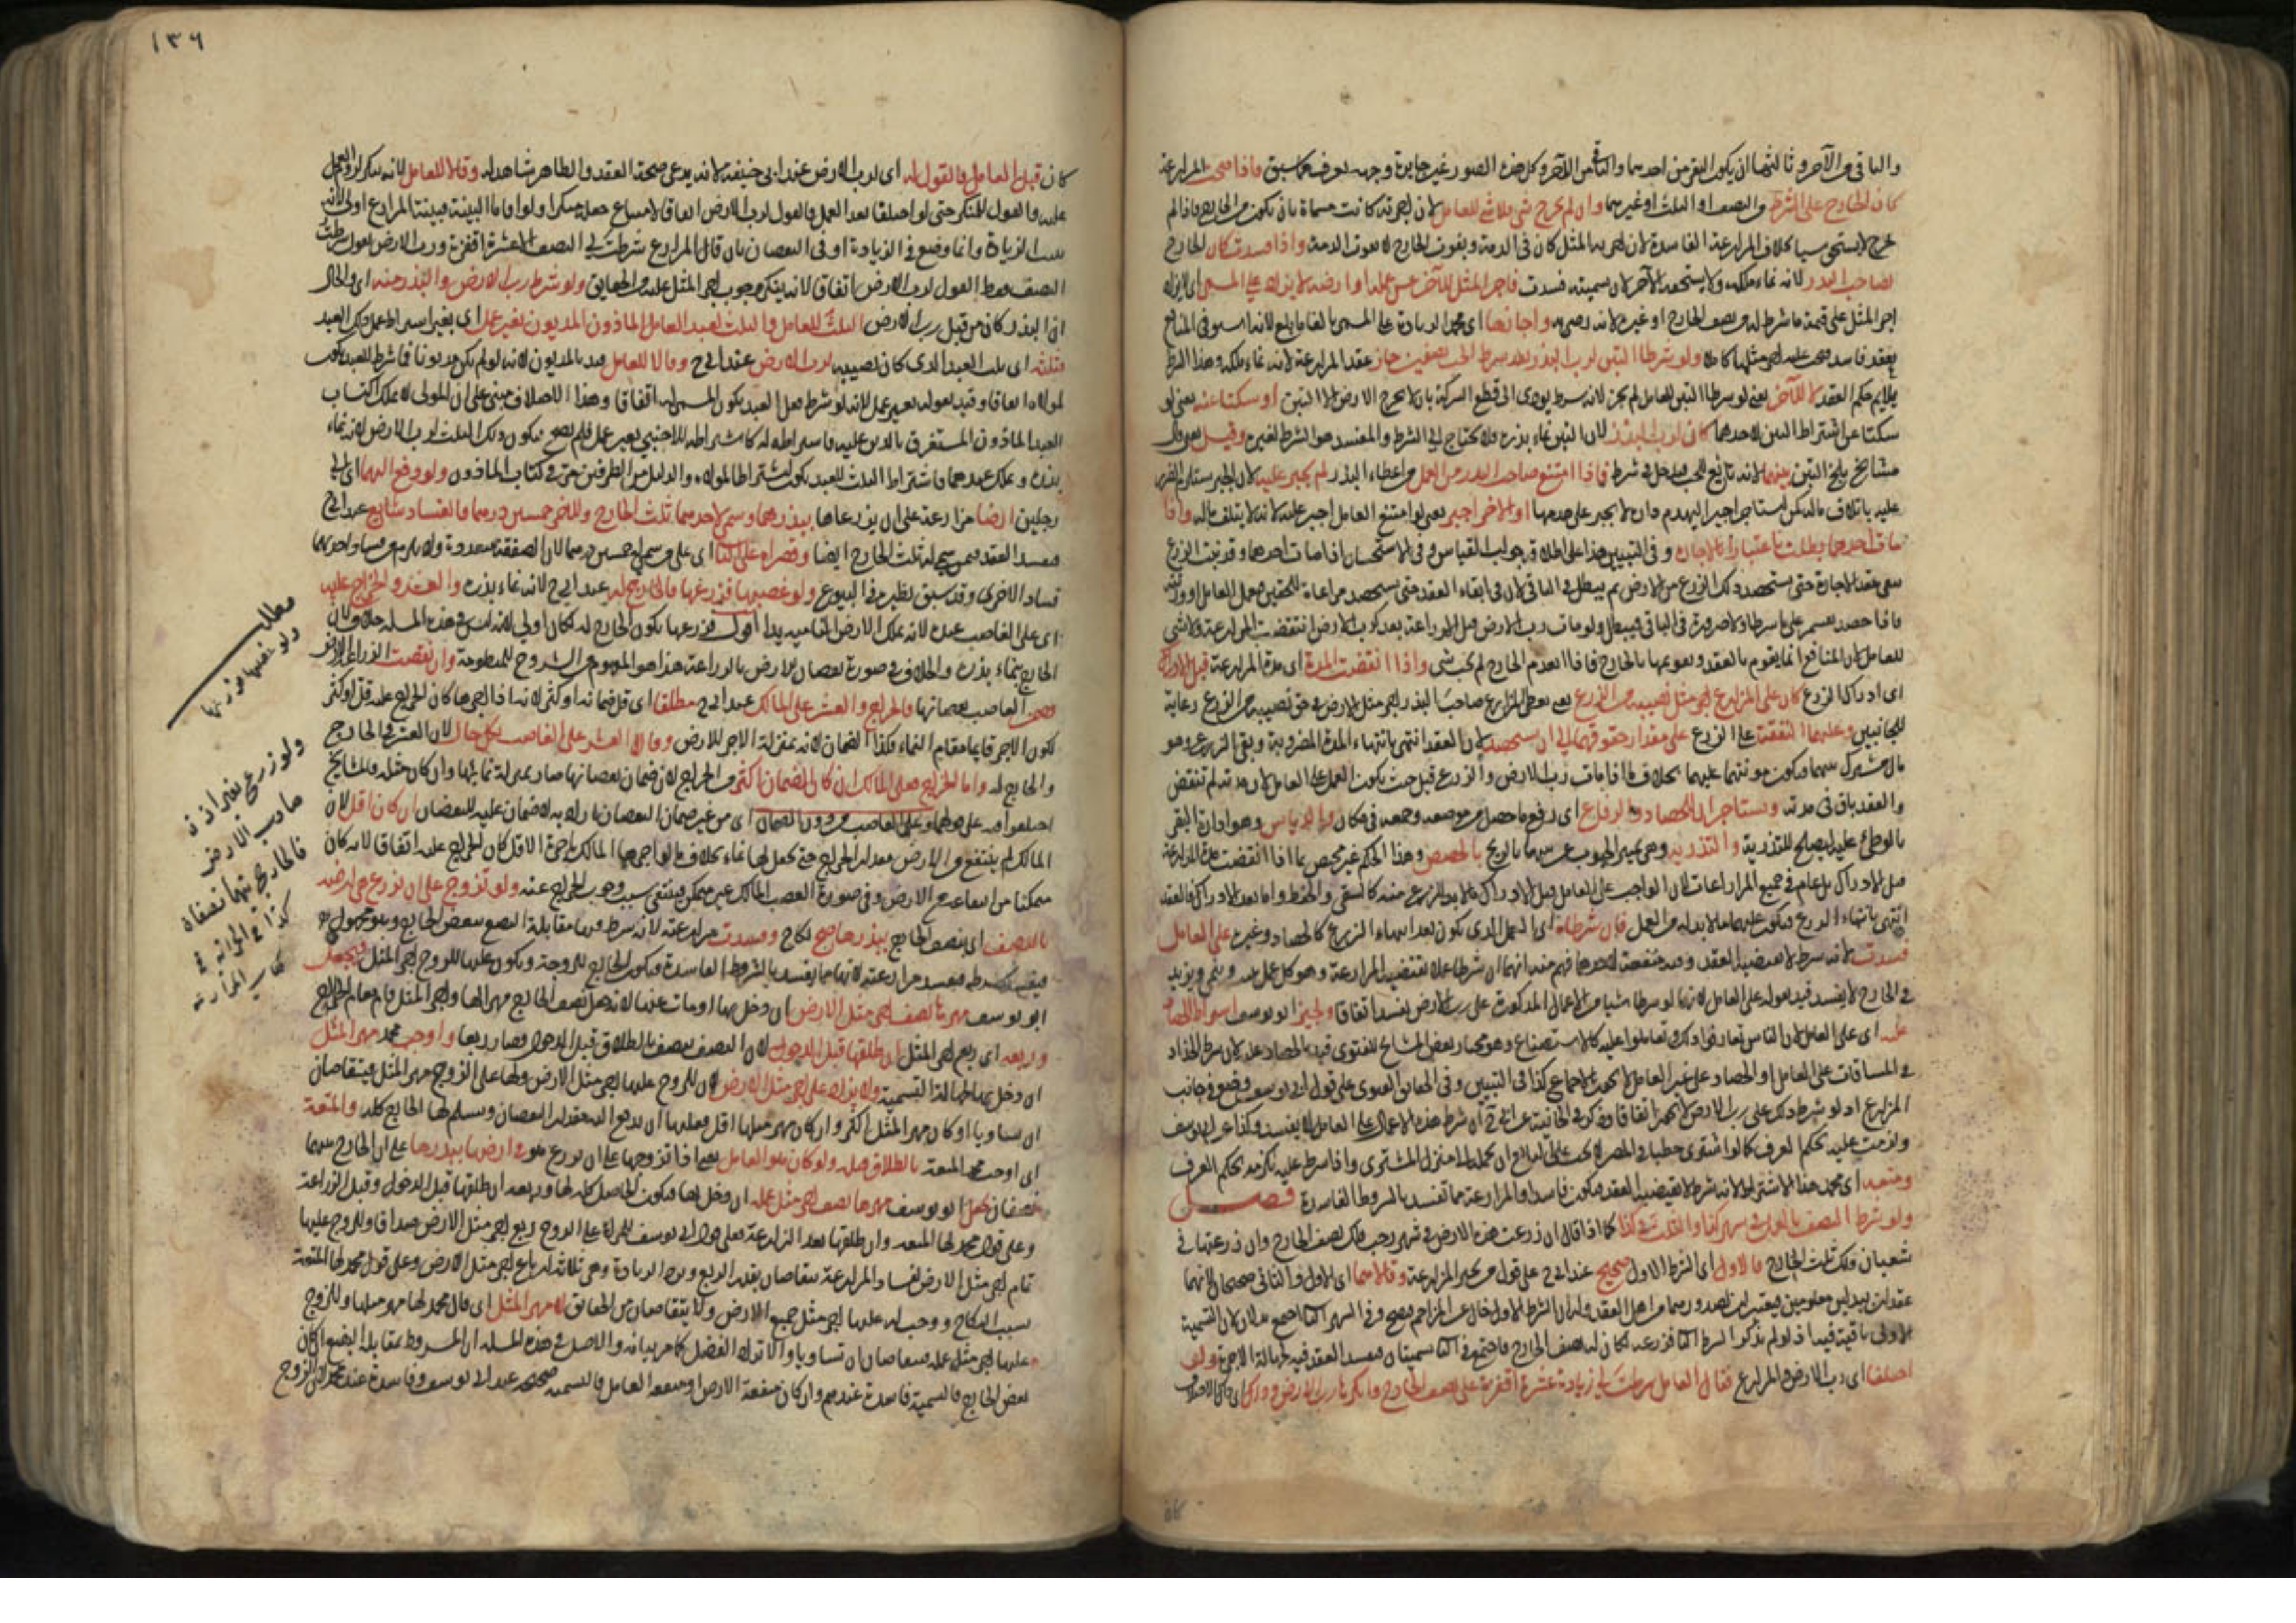 والباقي من الآخر وثالثها ان يكون البقر من احدهما والباقي من الآخر وكل هذه الصور غير جايزة وجهه يعرف مما سبق واذا صحت المزارعة
كان الخارج على الشرط من النصف او الثلث او غيرهما وان لم يخرج شئ فلا شئ للعامل لان اجرته كانت مسماة بان يكون من الخارج فاذا لم
يخرج لا يستحق شيا بخلاف المزارعة الفاسدة لان اجر المثل كان في الذمة وبفوت الخارج لا يفوت الذمة واذا فسدت كان الخارج
لصاحب البذر لانه نماء ملكه ولا يستحقه الآخر لان تسميته فسدت فاجر المثل للآخر عن عمله او ارضه لا يزاد على المسمى اي لا يزاد
اجر المثل على قيمة ما شرط له من نصف الخارج او غيره لانه رضي به واجازها اي محمد الزيادة على المسمى بالغا ما بلغ لانه استوفى المنافع
بعقد فاسد فيجب عليه اجر مثلها كاملا ولو شرطا التبن لرب البذر بعد شرط الحب نصفين جاز عقد المزارعة لانه نماء ملكه وهذا الشرط
يلايم حكم العقد لا للآخر يعني لو شرطا التبن للعامل لم يجز لانه شرط يؤدي الى قطع الشركة بان لا يخرج الارض الا التبن او سكتا عنه يعني لو
سكتا عن اشتراط التبن لاحدهما كان لرب البذر لان التبن نماء بذره فلا يحتاج الى الشرط والمفسد هو الشرط لغيره وقيل يعني قال
مشايخ بلخ التبن بينهما لانه تابع للحب فيدخل في شرطه فاذا امتنع صاحب البذر من العمل من اعطاء البذر لم يجبر عليه لان الجبر يستلزم الضرر
عليه باتلاف ماله كمن استاجر اجيرا ليهدم داره لا يجبر على هدمها او الآخر اجبر يعني لو امتنع العامل اجبر عليه لانه لا يتلف ماله واذا
مات احدهما بطلت باعتباره بالاجارة وفي التبيين هذا على اطلاقه جواب القياس وفي الاستحسان اذا مات احدهما وقد نبت الزرع
يبقى عقد الاجارة حتى يستحصد ذلك الزرع من الارض ثم يبطل في الباقي لان في ابقاء العقد حتى يستحصد مراعاة للحقين فيعمل العامل او ورثته
فاذا حصد يقسم على ما شرطا ولا ضرورة في الباقي فيبطل ولو مات رب الارض قبل الزراعة بعد كرب الارض انتقضت المزارعة ولا شئ
للعامل لان المنافع انما يقوم بالعقد وتقويمها بالخارج فاذا انعدم الخارج لم يجب شئ واذا انقضت المدة اي مدة المزارعة قبل الادراك
اي ادراك الزرع كان على المزارع اجر مثل نصيبه من الزرع يعني يعطي المزارع صاحب البذر اجر مثل الارض في حق نصيبه من الزرع رعاية
للجانبين وعليهما النفقة على الزرع على مقدار حقوقهما الى ان يستحصد لان العقد انتهى بانتهاء المدة المضروبة وبقي الزرع وهو
مال مشترك بينهما فيكون مؤنتها عليهما بخلاف ما اذا مات رب الارض والزرع قبل حيث يكون العمل على العامل لان مدته لم تنقض
والعقد باق في مدته ويستاجر الحصاد والرفاع اي رفع ما حصد من موضعه وجمعه في مكان والدياس وهو ادارة البقر
بالوطئ عليه ليصلح للتذرية والتذرية وهي تمييز الحبوب عن تبنها بالريح بالحصص وهذا الحكم غير مختص بما اذا انقضت مدة المزارعة
قبل الادراك بل عام في جميع المزارعات لان الواجب على العامل قبل الادراك ما لا بد للزرع منه كالسقي والحفظ واما بعد الادراك فالعقد
انتهى بانتهاء الزرع فيكون عليهما ما لا بد له من العمل فان شرطاه اي العمل الذي يكون بعد انتهاء الزرع كالحصاد وغيره على العامل
فسدت لانه شرط لا يقتضيه العقد وفيه منفعة لاحدهما فهم منه انهما ان شرطا عملا تقتضيه المزارعة وهو كل عمل ينمي ويزيد
في الخارج لا يفسد قيد بقوله على العامل لانهما لو شرطا شيا من الاعمال المذكورة على رب الارض يفسد اتفاقا ويجيز ابو يوسف اشتراط الحصاد
عليه اي على العامل لان الناس تعارفوا ذلك وتعاملوا عليه كالاستصناع وهو مختار بعض المشايخ للفتوى قيد بالحصاد عليه لان شرط الجذاذ
في المساقات على العامل والحصاد على غير العامل لا يجوز بالاجماع كذا في التبيين وفي الحقايق الفتوى على قول ابي يوسف وضع في جانب
المزارع اذ لو شرط ذلك على رب الارض لا يجوز اتفاقا وذكر في الخانية
ولزمت عليه بحكم العرف كما لو اشترى حطبا في المصر لا يجب على البايع ان يحمله الى منزل المشتري واذا شرط عليه يلزمه بحكم العرف
ومنعه اي محمد هذا الاشتراط لانه شرط لا يقتضيه العقد فيكون فاسدا والمزارعة مما تفسد بالشروط الفاسدة فصل
ولو شرط النصف بالعمل في شهر كذا والثلث في كذا كما اذا قال ان زرعت هذه الارض في شهر رجب فلك نصف الخارج وان زرعتها في
شعبان فلك ثلث الخارج فالاول اي الشرط الاول صحيح عند ابي ح على قول من يجيز المزارعة وقالا هما اي الاول والثاني صحيحان لانهما
عقدان ببدلين معلومين
الاولى باقية فيه اذ لو لم يذكر الشرط الثاني فزرعه لكان له نصف الخارج فاجتمع في الثاني تسميتان فيفسد العقد فيه لجهالة الاجرة ولو
اختلفا اي رب الارض والمزارع فقال العامل شرطت لي زيادة عشرة اقفزة على نصف الخارج وانكر رب الارض
١٣٦
كان قبل العامل فالقول له اي لرب الارض عند ابي حنيفة لانه يدعي صحة العقد والظاهر شاهد له وقالا للعامل لانه ينكر لزوم العمل
عليه والقول للمنكر حتى لو اختلفا بعد العمل فالقول لرب الارض اتفاقا لامتناع جعله منكرا ولو اقاما البينة فبينة المزارع اولى لانه
يثبت الزيادة وانما وضع في الزيادة اذ في النقصان بان قال المزارع شرطت لي النصف الا عشرة اقفزة ورب الارض يقول شرطت
النصف فقط القول لرب الارض اتفاقا لانه ينكر وجوب اجر المثل عليه من الحقايق ولو شرط رب الارض والبذر منه اي والحال
ان البذر كان من قبل رب الارض الثلث للعامل والثلث لعبد العامل الماذون المديون بغير عمل اي بغير اشتراط عمل ذلك العبد
فثلثه اي ثلث العبد الذي كان نصيبه لرب الارض عند ابي ح وقالا للعامل قيد بالمديون لانه لو لم يكن مديونا فما شرط للعبد يكون
لمولاه اتفاقا وقيد بقوله بغير عمل لانه لو شرط عمل العبد يكون المسمى له اتفاقا وهذا الاختلاف مبني على ان المولى لا يملك اكتساب
العبد الماذون المستغرق بالدين عليه فاشتراطه له كاشتراطه للاجنبي بغير عمل فلم يصح فيكون ذلك الثلث لرب الارض لانه نماء
بذره ويملك عندهما فاشتراط الثلث للعبد يكون اشتراطا لمولاه والدليل من الطرفين مر في كتاب الماذون ولو دفع اليهما اي الى
رجلين ارضا مزارعة على ان يزرعاها ببذرهما وسمى لاحدهما ثلث الخارج وللآخر خمسين درهما فالفساد شايع عند ابي ح
فيفسد العقد فيمن سمي له ثلث الخارج ايضا وقصراه على الثاني اي على من سمي له خمسين درهما لان الصفقة متعددة ولا يلزم من فساد احديهما
فساد الاخرى وقد سبق نظيره في البيوع ولو غصبها فزرعها فالخارج له عند ابي ح لانه نماء بذره والعشر والخراج عليه
اي على الغاصب عنده لانه يملك الارض
الخارج نماء بذره والخلاف في صورة نقصان الارض بالزراعة هذا هو المفهوم من الشروح للمنظومة وان نقصت الزراعة الارض
وضمن الغاصب نقصانها فالخراج والعشر على المالك عند ابي ح مطلقا اي قل ضمانه او كثر لانه اذا آجرها كان الخراج عليه قل او كثر
لكون الاجر قايما مقام النماء فكذا الضمان لانه بمنزلة الاجر للارض وقالا العشر على الغاصب بكل حال لان العشر في الخارج
والخارج له واما الخراج فعلى المالك ان كان الضمان اكثر من الخراج لان ضمان نقصانها صار بمنزلة نمائها وان كان مثله فالمشايخ
اختلفوا فيه على قولهما وعلى الغاصب من دون الضمان اي من غير ضمان النقصان
المالك لم ينتفع من الارض مقدار الخراج حتى يجعل لها نماء بخلاف ما لو آجرها المالك باجرة الاقل كان الخراج عليه اتفاقا لانه كان
ممكنا من انتفاع جميع الارض وفي صورة الغصب المالك غير ممكن فينتفي سبب وجوب الخراج عنه ولو تزوج على ان يزرع هي ارضه
بالنصف اي بنصف الخارج ببذرها صح النكاح وفسدت مزارعته لانه شرط فيها مقابلة البضع ببعض الخارج وهو مجهول
فيفسد مزارعته لانها مما يفسد بالشروط الفاسدة فيكون الخارج للزوجة ويكون عليها للزوج اجر المثل فيجعل
ابو يوسف مهرها نصف اجر مثل الارض ان دخل بها او مات عنها لانه جعل نصف الخارج مهرا لها واجر المثل قام مقام الخارج
وربعه اي ربع اجر المثل ان طلقها قبل الدخول لان النصف ينصف بالطلاق قبل الدخول فصار ربعا واوجب محمد مهر المثل
ان دخل بها لجهالة التسمية ولا يزاد على اجر مثل الارض لان للزوج عليها اجر مثل الارض ولها على الزوج مهر المثل فيتقاصان
ان تساويا او كان مهر المثل اكثر وان كان مهر مثلها اقل فعليها ان يدفع اليه مقدار النقصان ويسلم لها الخارج كله والمتعة
اي اوجب محمد المتعة بالطلاق قبله ولو كان هو العامل يعني اذا تزوجها على ان يزرع هو في ارضها ببذرها على ان الخارج بينهما
نصفان يجعل ابو يوسف مهرها نصف اجر مثل عمله ان دخل بها فيكون الحاصل كله لها وربعه ان طلقها قبل الدخول وقبل الزراعة
وعلى قول محمد لها المتعة وان طلقها بعد الزراعة فعلى قول ابي يوسف للمراة على الزوج ربع اجر مثل الارض صداقا وللزوج عليها
تمام اجر مثل الارض لفساد المزارعة يتقاصان بقدر الربع وترد الزيادة وهي ثلاثة ارباع اجر مثل الارض وعلى قول محمد لها المتعة
بسبب النكاح ووجب له عليها اجر مثل جميع الارض ولا يتقاصان من الحقايق له مهر المثل اي قال محمد لها مهر مثلها وللزوج
عليها اجر مثل عمله فيتقاصان ان تساويا والا ترد الفضل كما مر بيانه والاصل في هذه المسئلة ان المشروط بمقابلة البضع ان كان
بعض الخارج فالتسمية فاسدة عندهم وان كان منفعة الارض او منفعة العامل فالتسمية صحيحة عند ابي يوسف وفاسدة عند محمد
مطلب
ولو غصبها فزرعها
ولو زرع بغير اذن
صاحب الارض
فالخارج بينهما نصفان
كذا في الخزانة في
كتاب المزارعة